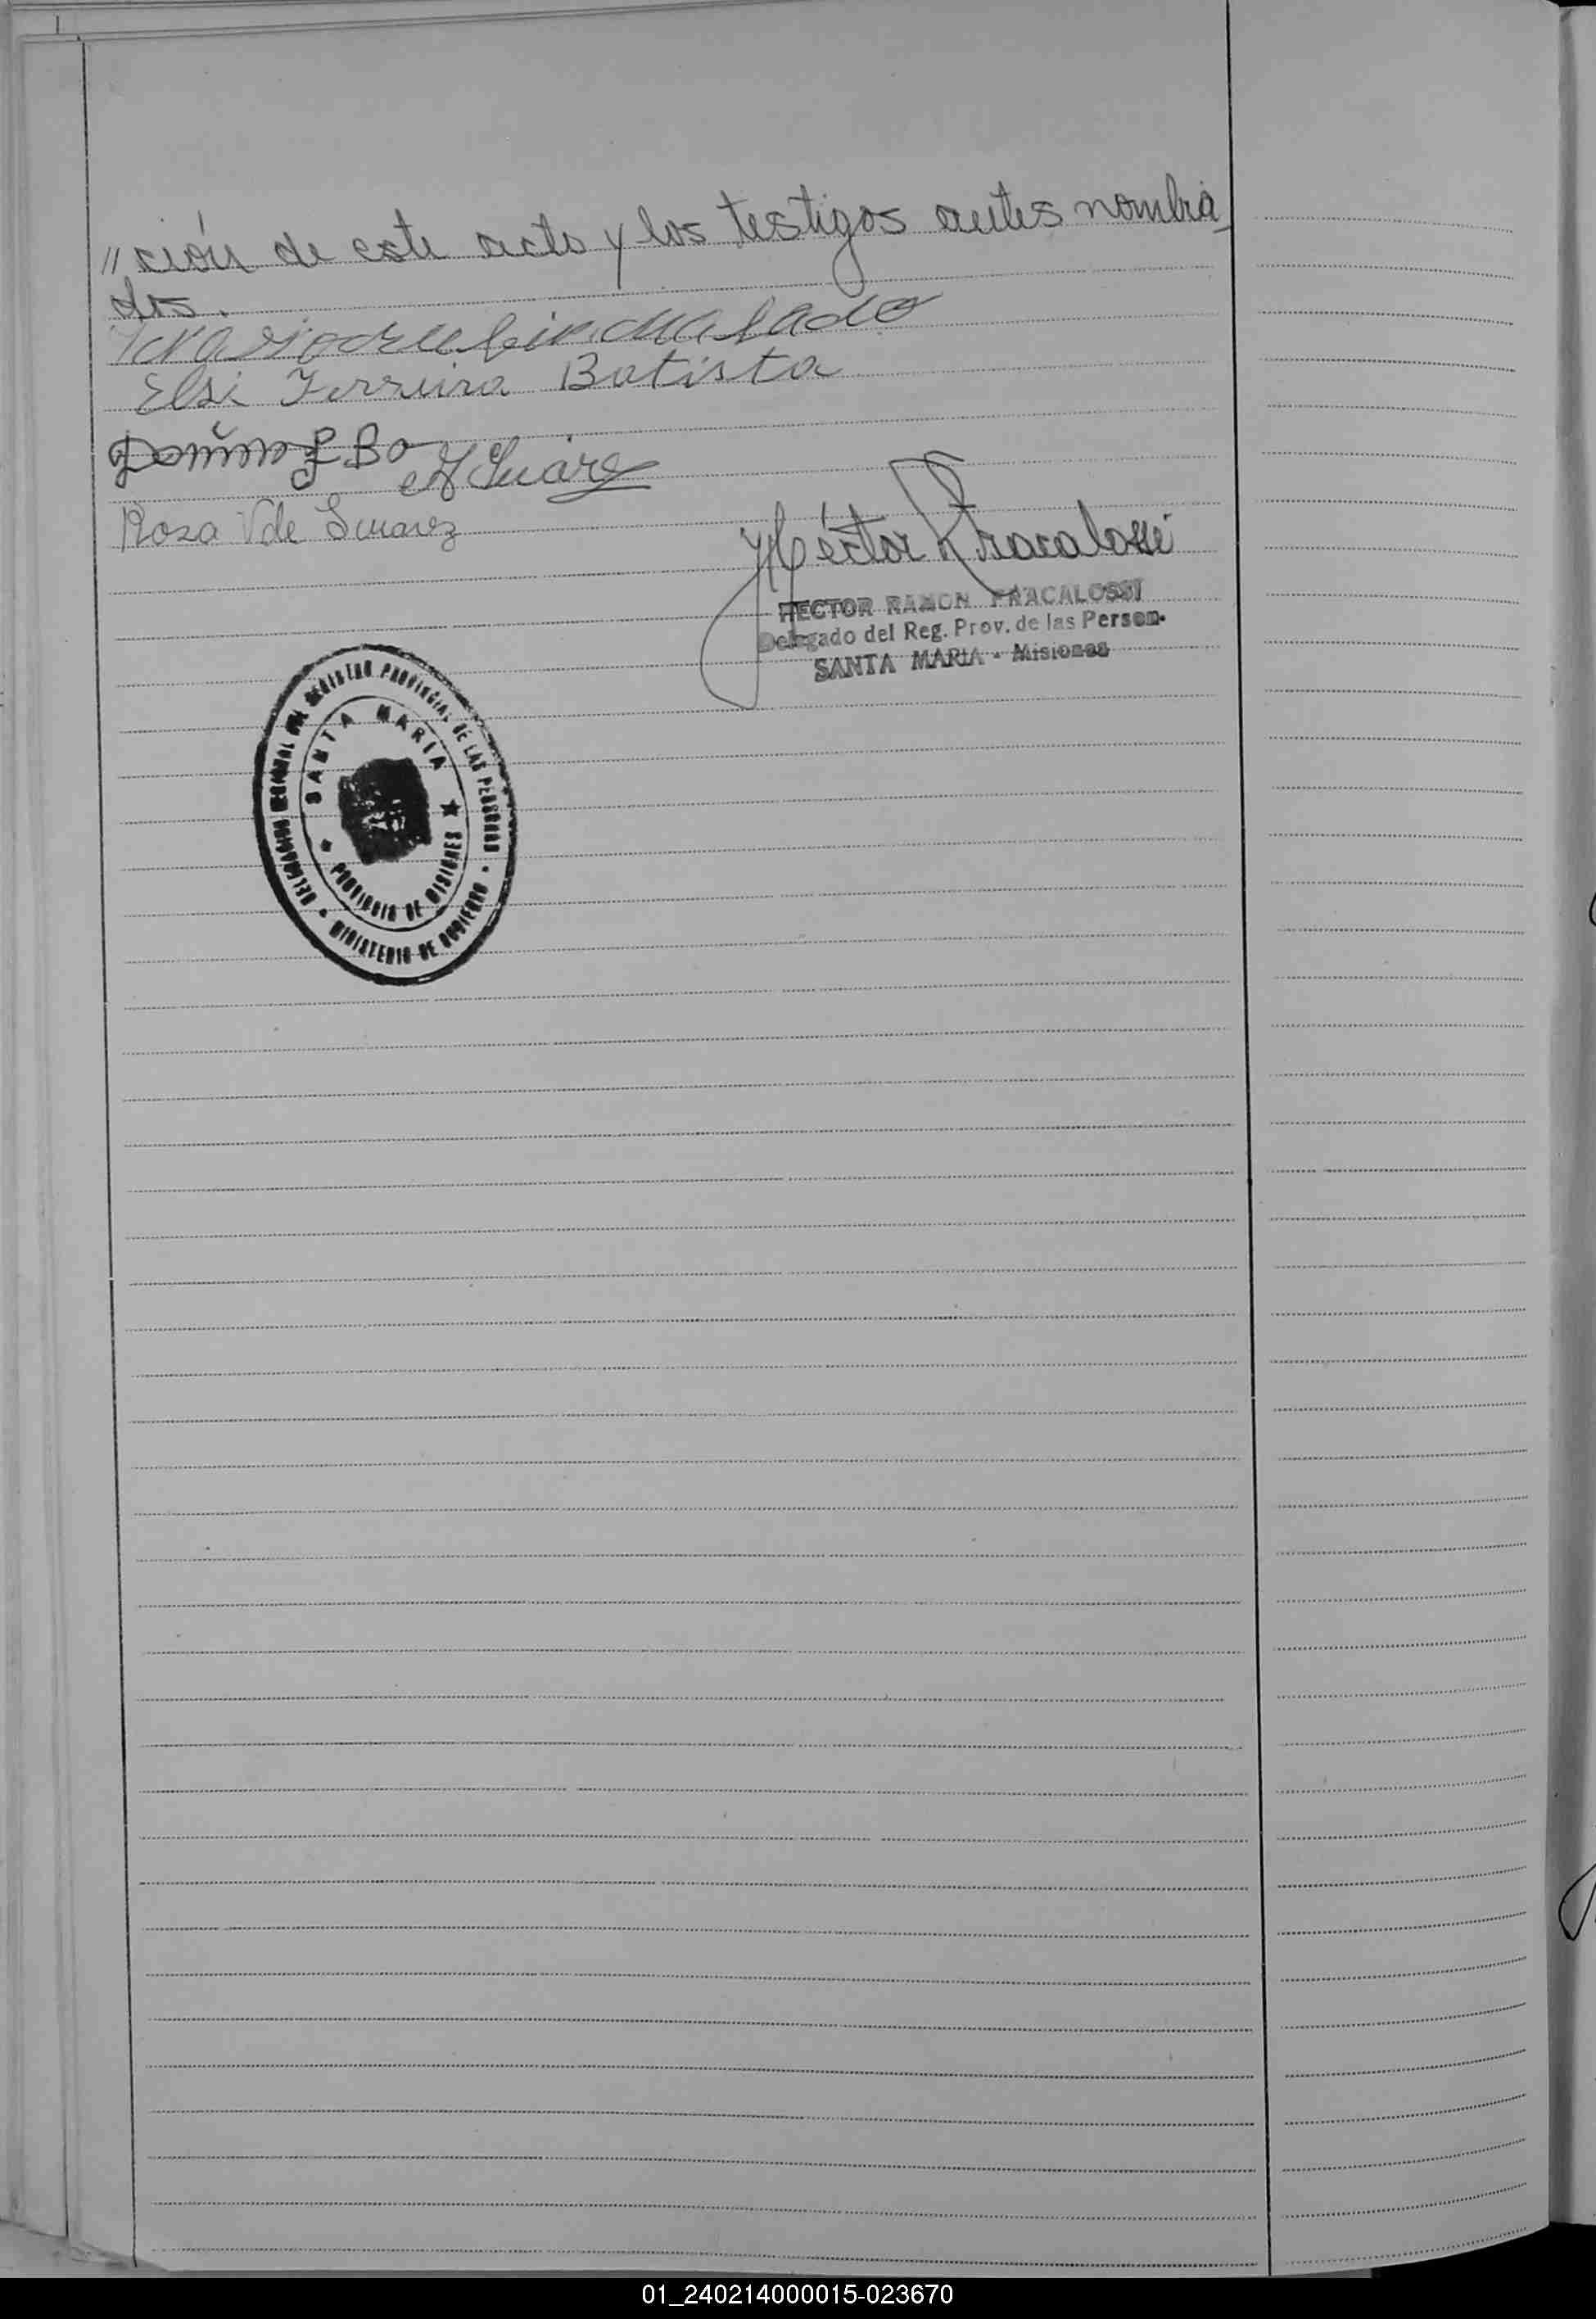 // ción de este acto y los testigos antes nombra
dos.
Elsi Ferreira Batista
A Suárez
Rosa V de Suarez
Héctor R Fracalossi
HECTOR RAMON FRACALOSSI
Delegado del Reg. Prov. de las Person.
SANTA MARIA - Misiones
DELEGACION REGIONAL DEL REGISTRO PROVINCIAL DE LAS PERSONAS
SANTA MARIA
PROVINCIA DE MISIONES
MINISTERIO DE GOBIERNO
01_240214000015-023670